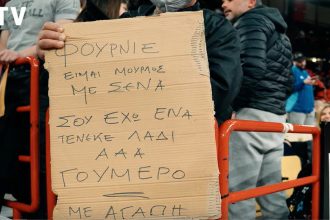 TV
ΦΟΥΡΝΙΕ
ΕΙΜΑΙ ΜΟΥΡΜΟΣ
ΜΕ ΣΕΝΑ
ΣΟΥ ΕΧΩ ΕΝΑ
ΤΕΝΕΚΕ ΛΑΔΙ
ΑΑΑ
ΓΟΥΜΕΡΟ
ΜΕ ΑΓΑΠΗ